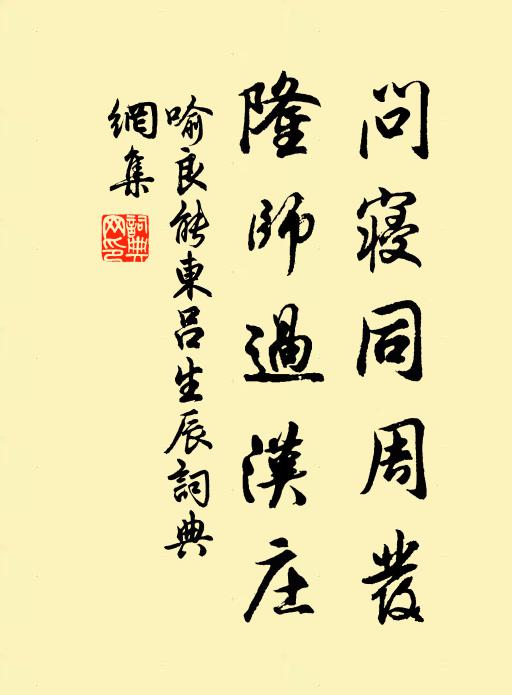 問寝同周發
隆師過漢庄
喻良能東吕生辰詞典
網集
詞典
网印